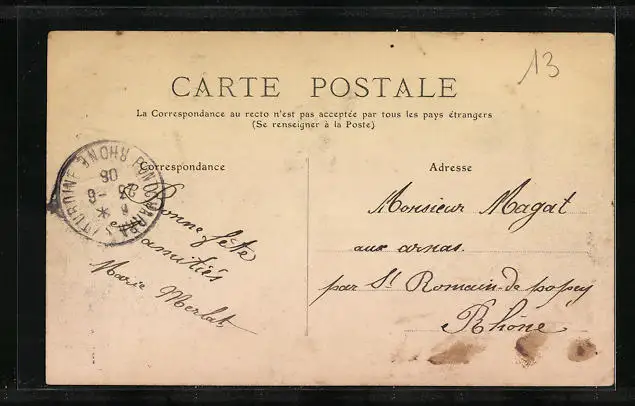 13
CARTE POSTALE
La Correspondance au recto n'est pas acceptée par tous les pays étrangers
(Se renseigner à la Poste)
Correspondance
Bonne fête
et amitiés
Marie Merlat
Adresse
Monsieur Magat
aux arnas.
par St Romain-de popey
Rhône
RHONE
08